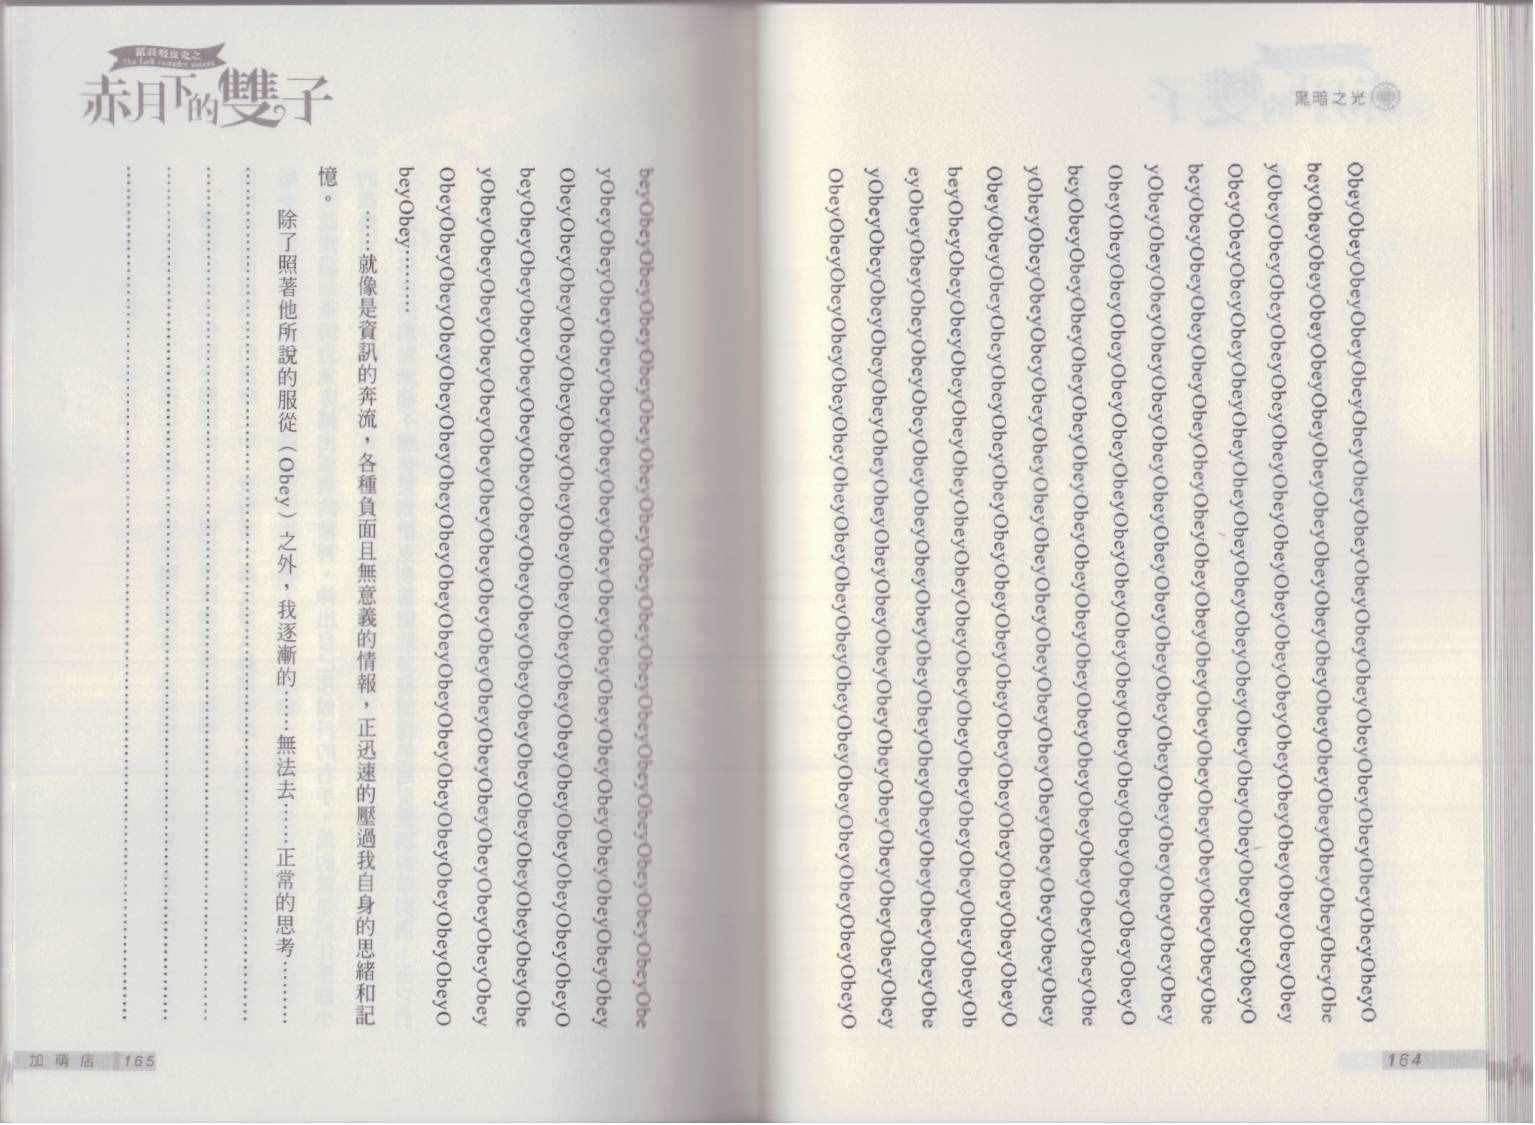 翼殺吸血史之
赤月下的雙子
黑暗之光
ObeyObeyObeyObeyObeyObeyObeyObeyObeyObeyObeyObeyObeyObeyObeyObeyObeyO
beyObeyObeyObeyObeyObeyObeyObeyObeyObeyObeyObeyObeyObeyObeyObeyObeyObe
yObeyObeyObeyObeyObeyObeyObeyObeyObeyObeyObeyObeyObeyObeyObeyObeyObey
ObeyObeyObeyObeyObeyObeyObeyObeyObeyObeyObeyObeyObeyObeyObeyObeyObeyO
beyObeyObeyObeyObeyObeyObeyObeyObeyObeyObeyObeyObeyObeyObeyObeyObeyObe
yObeyObeyObeyObeyObeyObeyObeyObeyObeyObeyObeyObeyObeyObeyObeyObeyObey
ObeyObeyObeyObeyObeyObeyObeyObeyObeyObeyObeyObeyObeyObeyObeyObeyObeyO
beyObeyObeyObeyObeyObeyObeyObeyObeyObeyObeyObeyObeyObeyObeyObeyObeyObe
yObeyObeyObeyObeyObeyObeyObeyObeyObeyObeyObeyObeyObeyObeyObeyObeyObey
ObeyObeyObeyObeyObeyObeyObeyObeyObeyObeyObeyObeyObeyObeyObeyObeyObeyO
beyObeyObeyObeyObeyObeyObeyObeyObeyObeyObeyObeyObeyObeyObeyObeyObeyOb
eyObeyObeyObeyObeyObeyObeyObeyObeyObeyObeyObeyObeyObeyObeyObeyObeyObe
yObeyObeyObeyObeyObeyObeyObeyObeyObeyObeyObeyObeyObeyObeyObeyObeyObey
ObeyObeyObeyObeyObeyObeyObeyObeyObeyObeyObeyObeyObeyObeyObeyObeyObeyO
164
beyObeyObeyObeyObeyObeyObeyObeyObeyObeyObeyObeyObeyObeyObeyObeyObeyObe
yObeyObeyObeyObeyObeyObeyObeyObeyObeyObeyObeyObeyObeyObeyObeyObeyObey
ObeyObeyObeyObeyObeyObeyObeyObeyObeyObeyObeyObeyObeyObeyObeyObeyObeyO
beyObeyObeyObeyObeyObeyObeyObeyObeyObeyObeyObeyObeyObeyObeyObeyObeyObe
yObeyObeyObeyObeyObeyObeyObeyObeyObeyObeyObeyObeyObeyObeyObeyObeyObey
ObeyObeyObeyObeyObeyObeyObeyObeyObeyObeyObeyObeyObeyObeyObeyObeyObeyO
beyObey…………
……就像是資訊的奔流，各種負面且無意義的情報，正迅速的壓過我自身的思緒和記
憶。
除了照著他所說的服從（Obey）之外，我逐漸的……無法去……正常的思考…………
………………………………………………………………………………
………………………………………………………………………………
………………………………………………………………………………
………………………………………………………………………………
加萌店 165